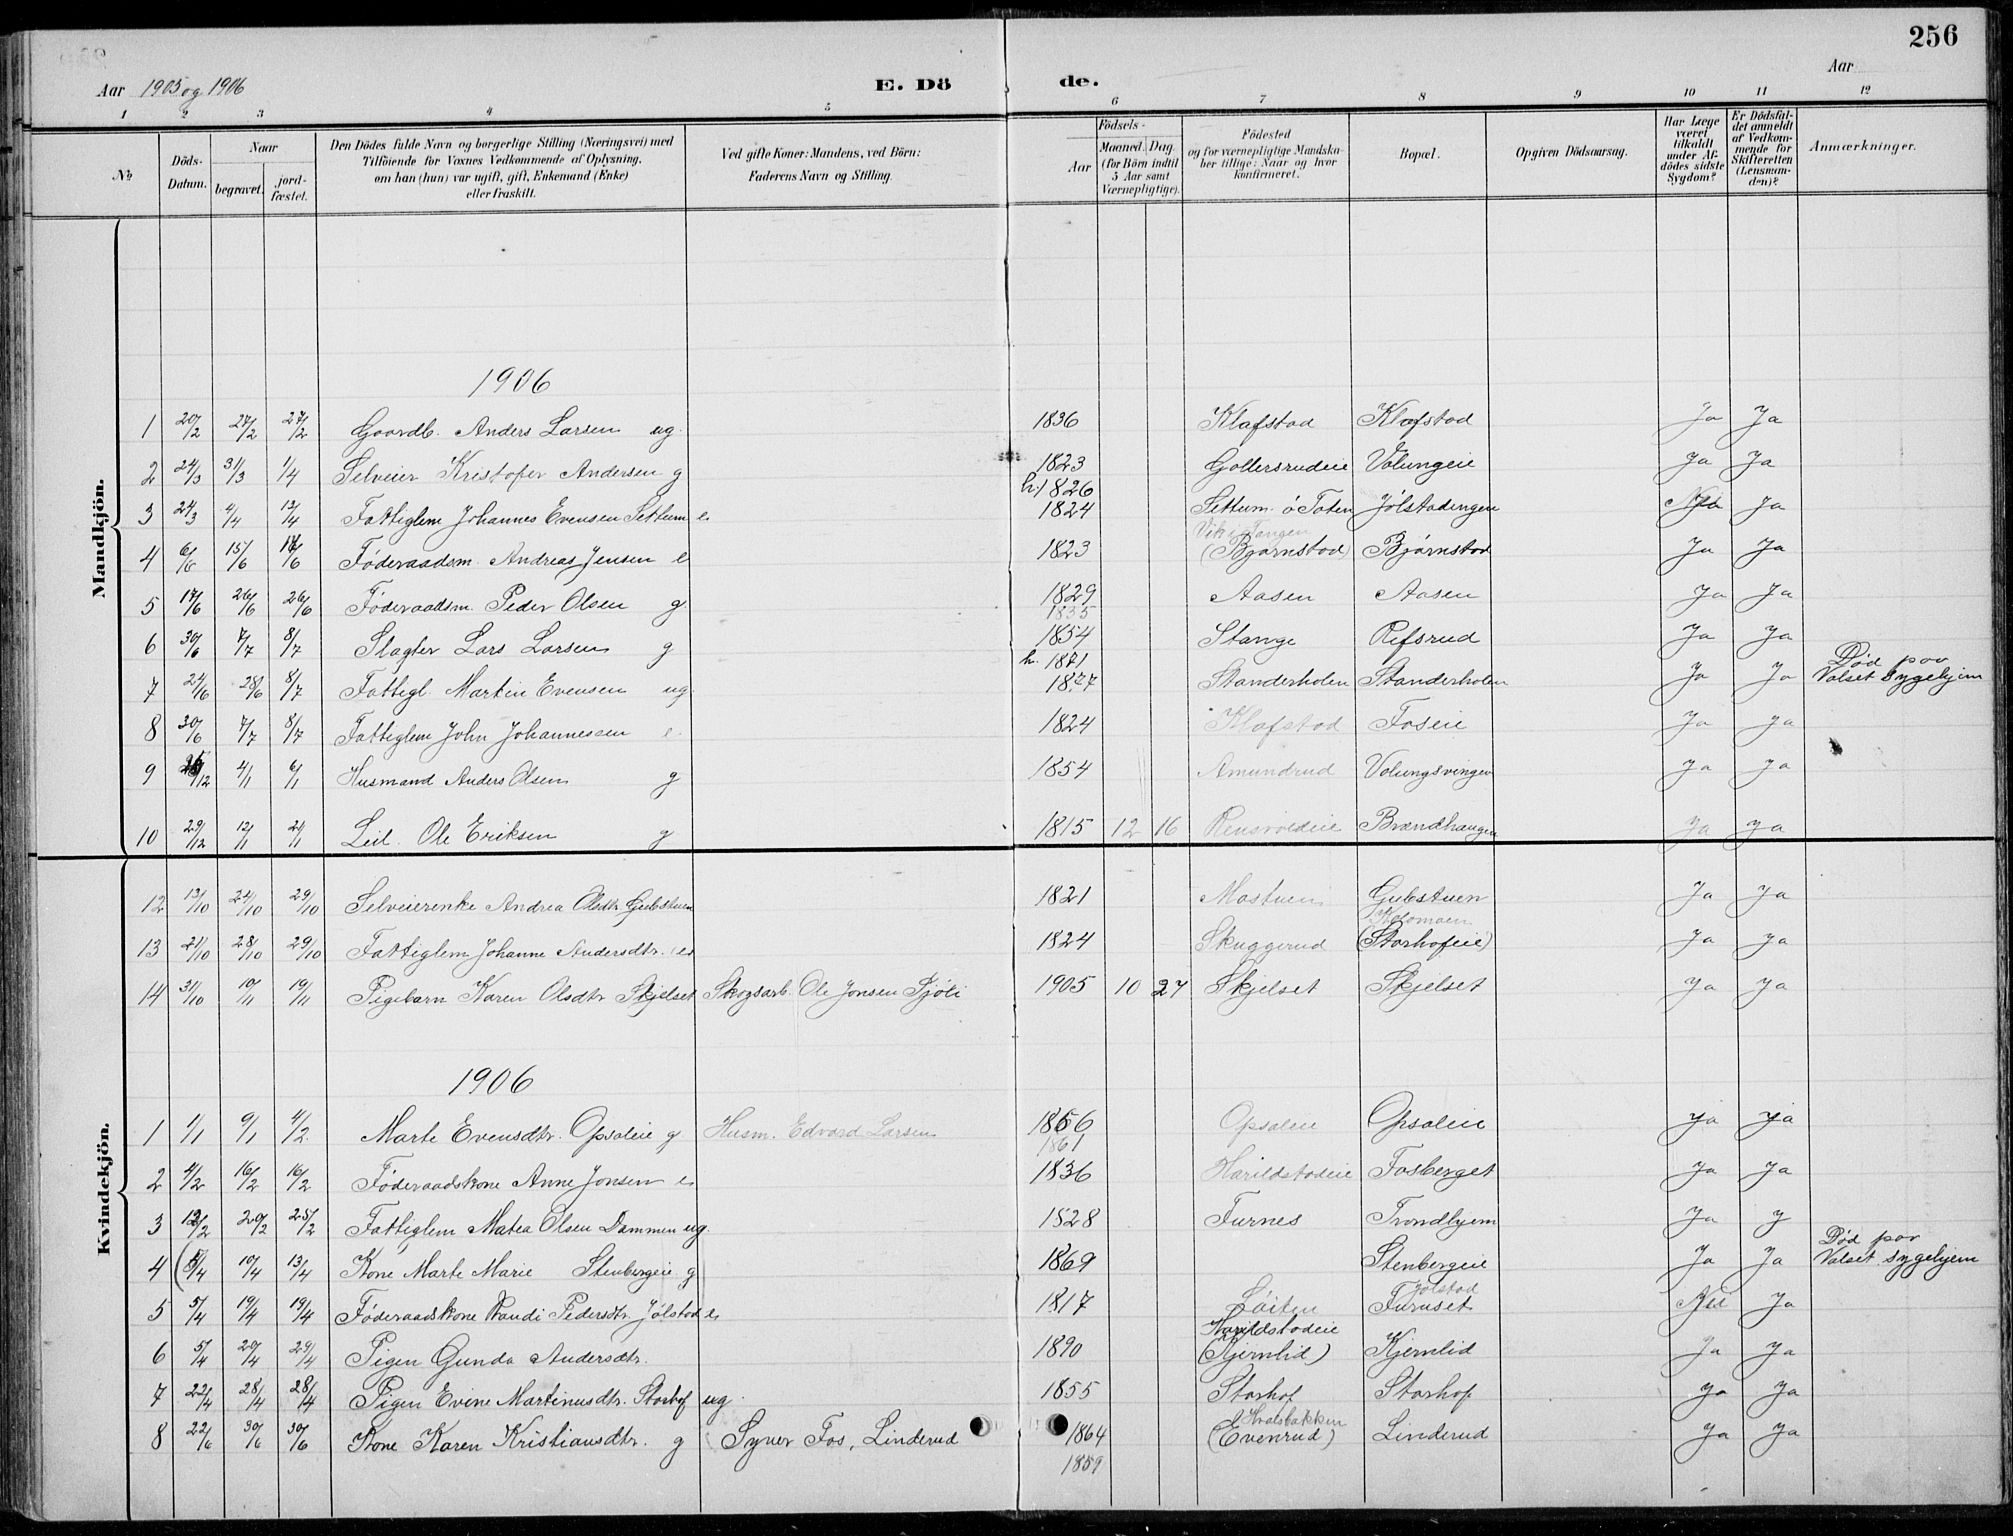 256
Aar 1905 og 1906
E. Dö de.
Aar
1 2 3 4 5 6 7 8 9 10 11 12
No
Döds-Datum.
Naar
begravet.
jord-fæstet.
Den Dödes fulde Navn og borgerlige Stilling (Næringsvei) med
Tilföiende for Voxnes Vedkommende af Oplysning,
om han (hun) var ugift, gift, Enkemand (Enke)
eller fraskilt.
Ved gifte Koner: Mandens, ved Börn:
Faderens Navn og Stilling.
Födsels-
Aar
Maaned. Dag.
(for Börn indtil
5 Aar samt
Værnepligtige).
Födested
og for værnepligtige Mandska-
ber tillige: Naar og hvor
konfirmeret.
Bopæl.
Opgiven Dödsaarsag.
Har Læge
været
tilkaldt
under Af-
dödes sidste
Sygdom?
Er Dödsfal-
det anmeldt
af Vedkom-
mende for
Skifteretten
(Lensman-
den)?
Anmærkninger.
Mandkjön.
1906
1 20/2 27/2 27/2 Gaardb. Anders Larsen ug. 1836 Klafstad Klafstad Ja Ja
2 24/3 31/3 1/4 Selveier Kristofer Andersen g 1823 Gollersrudeie Volungeie Ja Ja
h. 1826
3 24/3 4/4 13/4 Fattiglem Johannes Evensen Settum e. 1824 Settum ö Toten Jølstadengen Ja
Vik i Tangen
4 6/6 15/6 17/6 Føderaadsm. Andreas Jensen e 1823 (Bjørnstad) Bjørnstad Ja Ja
5 17/6 26/6 26/6 Føderaadsm. Peder Olsen g 1829 Aasen Aasen Ja Ja
1835
6 30/6 7/7 8/7 Slagter Lars Larsen g 1854 Stange Refsrud Ja Ja
h. 1871
7 24/6 28/6 8/7 Fattigl. Martin Evensen ug. 1877 Standerholen Standerholen Ja Ja Død paa
Valset Sygehjem
8 30/6 7/7 8/7 Fattiglem John Johannessen e. 1824 Klafstad Foseie Ja Ja
9 4/1 6/1 Husmand Anders Olsen g 1854 Amundrud Volungsvingen Ja Ja
10 29/12 12/1 21/1 Leil. Ole Eriksen g 1815 12 16 Rensvoldeie Brændhaugen Ja Ja
12 13/10 24/10 29/10 Selveierenke Andrea Olsdtr. Gubstuen 1821 Mostuen Gubstuen Ja Ja
13 21/10 28/10 29/10 Fattiglem Johanne Andersdtr. e 1824 Skuggerud (Storhofeie) Ja Ja
14 31/10 10/11 19/11 Pigebarn Karen Olsdtr. Skjelset Skogsarb. Ole Jonsen Sjøli 1905 10 27 Skjelset Skjelset Ja Ja
Kvindekjön.
1906
1 1/1 9/1 4/2 Marte Evensdtr. Opsaleie g. Husm. Edvard Larsen 1856 Opsaleie Opsaleie Ja Ja
1861
2 4/2 16/2 16/2 Føderaadskone Anne Jonsen e 1836 Harildstadeie Fosberget Ja Ja
3 12/2 20/2 25/2 Fattiglem Matea Olsen Dammen ug. 1828 Furnes Trondhjem Ja
4 5/4 10/4 13/4 Kone Marte Marie Stenbergeie g 1869 Stenbergeie Ja Ja Død paa
Valset Sygehjem
Jølstad
5 5/4 19/4 19/4 Føderaadskone Randi Pedersdtr. Jølstad e 1817 Löiten Furuset Nei Ja
Harildstadeie
6 5/4 20/4 29/4 Pigen Gunda Andersdtr. 1890 (Kjernlid) Kjernlid Ja Ja
7 22/4 28/4 28/4 Pigen Evine Martinusdtr. Storhof ug. 1855 Storhof Storhof Ja Ja
8 22/6 30/6 30/6 Kone Karen Kristiansdtr. g Syver Fos, Linderud 1864 (Evenrud) Linderud Ja Ja
1859